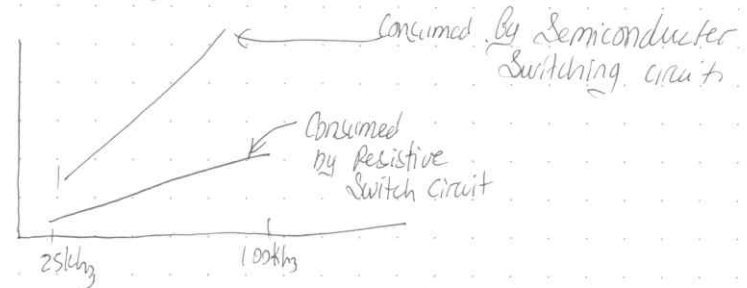 Consumed By Semiconducter
Switching circuit
Consumed
by Resistive
Switch Circuit
25khz
100khz